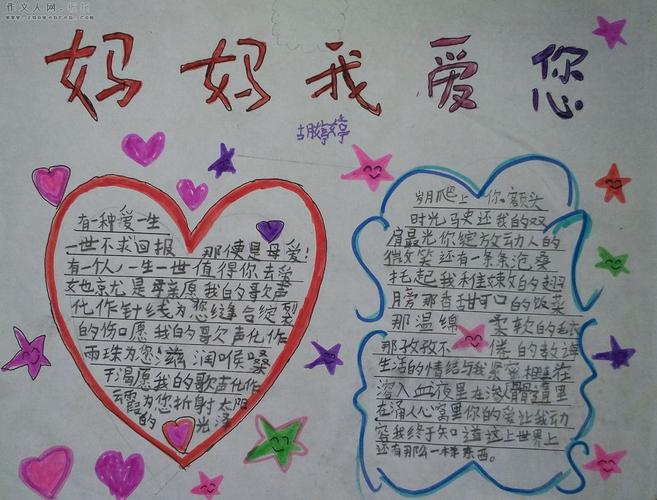 作文人网
www.zuowenren.com
妈妈我爱您
胡婷婷
有一种爱一生
一世不求回报 那便是母爱!
有一个人,一生一世值得你去爱
她就是母亲愿我的歌声
化作针线为您缝合绽裂
的伤口愿我的歌声化作
雨珠为您滋润喉嗓
干渴愿我的歌声化作
云霞为您折射太阳
的光泽
岁月爬上你额头
时光 还我的双
肩最光你绽放动人的
微笑还有一条条沧桑
托起我稚嫩的翅
膀那香甜可口的饭菜
那温绵 柔软的毛衣
那孜孜不倦的教诲
生活的情结与我紧密相连在
溶入血液里在渗人髓里
在涌人心窝里你的爱让我动
容我终于知道这上世界上
还有那么一样东西。